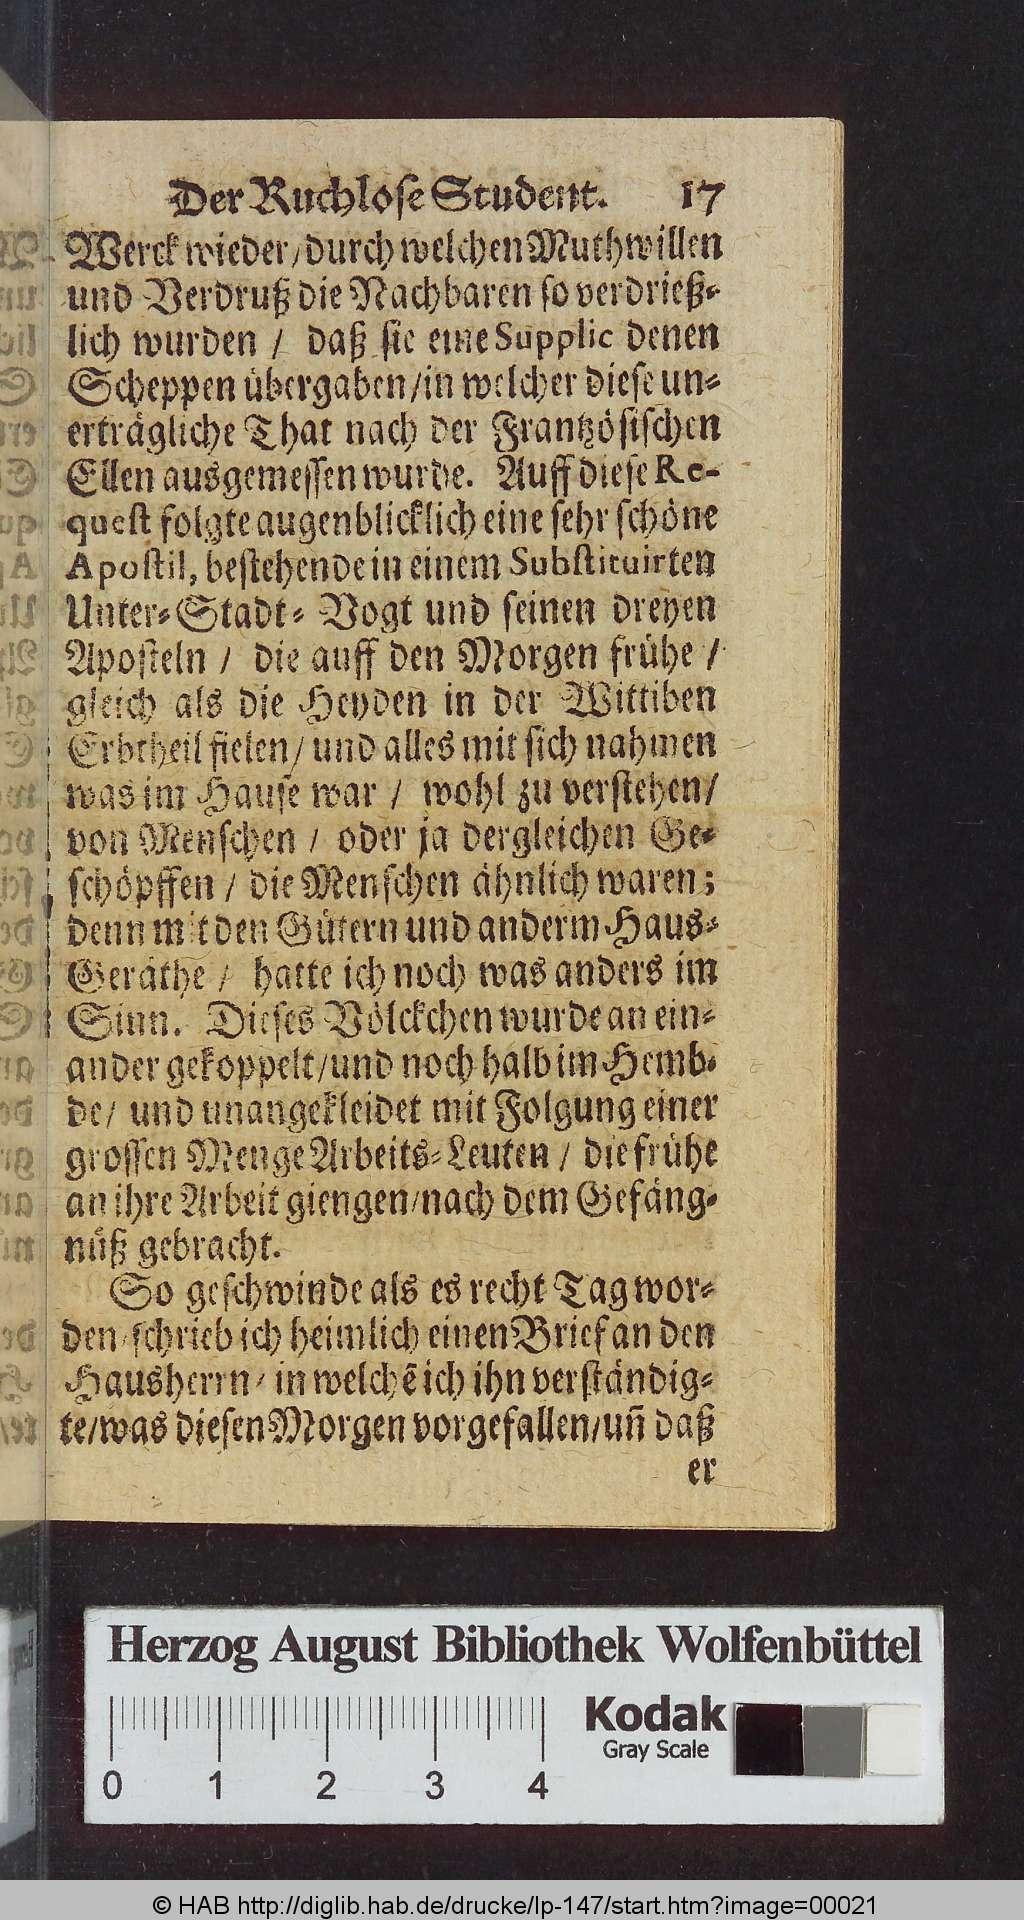 Der Ruchlose Student. 17
Werck wieder/ durch welchen Muthwillen
und Verdruß die Nachbaren so verdrieß-
lich wurden / daß sie eine Supplic denen
Scheppen übergaben/ in welcher diese un-
erträgliche That nach der Frantzösischen
Ellen ausgemessen wurde. Auff diese Re-
quest folgte augenblicklich eine sehr schöne
Apostil, bestehende in einem Substituirten
Unter-Stadt-Vogt und seinen dreyen
Aposteln / die auff den Morgen frühe /
gleich als die Heyden in der Wittiben
Erbtheil fielen/ und alles mit sich nahmen
was im Hause war / wohl zu verstehen/
von Menschen / oder ja dergleichen Ge-
schöpffen / die Menschen ähnlich waren;
denn mit den Gütern und anderm Haus-
Geräthe / hatte ich noch was anders im
Sinn. Dieses Völckchen wurde an ein-
ander gekoppelt/ und noch halb im Hemb-
de/ und unangekleidet mit Folgung einer
grossen Menge Arbeits-Leuten / die frühe
an ihre Arbeit giengen/ nach dem Gefäng-
nüß gebracht.
So geschwinde als es recht Tag wor-
den/ schrieb ich heimlich einen Brief an den
Hausherrn/ in welchẽ ich ihn verständig-
te/ was diesen Morgen vorgefallen/ uñ daß
er
Herzog August Bibliothek Wolfenbüttel
Kodak
Gray Scale
0 1 2 3 4
© HAB http://diglib.hab.de/drucke/lp-147/start.htm?image=00021